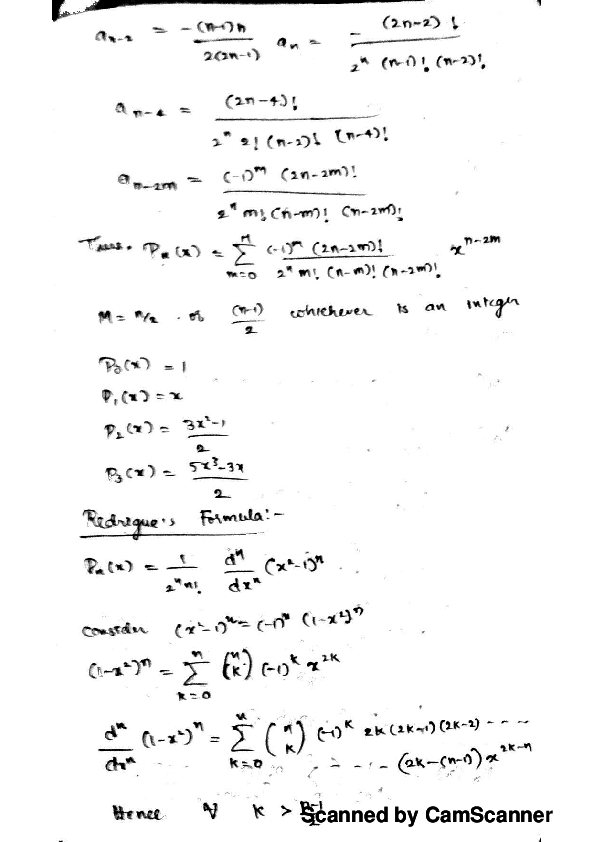 a_{n-2} = -(n-1)n / 2(2n-1) a_n = - (2n-2)! / 2^n (n-1)! (n-2)!
a_{n-4} = (2n-4)! / 2^n 2! (n-2)! (n-4)!
a_{n-2m} = (-1)^m (2n-2m)! / 2^n m! (n-m)! (n-2m)!
P_n(x) = Σ_{m=0}^{M} (-1)^m (2n-2m)! / 2^n m! (n-m)! (n-2m)! x^{n-2m}
M = n/2 . or (n-1)/2 whichever is an integer
P_0(x) = 1
P_1(x) = x
P_2(x) = 3x^2-1 / 2
P_3(x) = 5x^3-3x / 2
Redrigue's Formula:-
P_n(x) = 1 / 2^n n! d^n / dx^n (x^2-1)^n .
consider (x^2-1)^n = (-1)^n (1-x^2)^n
(1-x^2)^n = Σ_{k=0}^{n} (n k) (-1)^k x^{2k}
d^n / dx^n (1-x^2)^n = Σ_{k=0}^{n} (n k) (-1)^k 2k (2k-1) (2k-2) - - - -
- - - - (2k-(n-1)) x^{2k-n}
Hence ∀ k >
Scanned by CamScanner